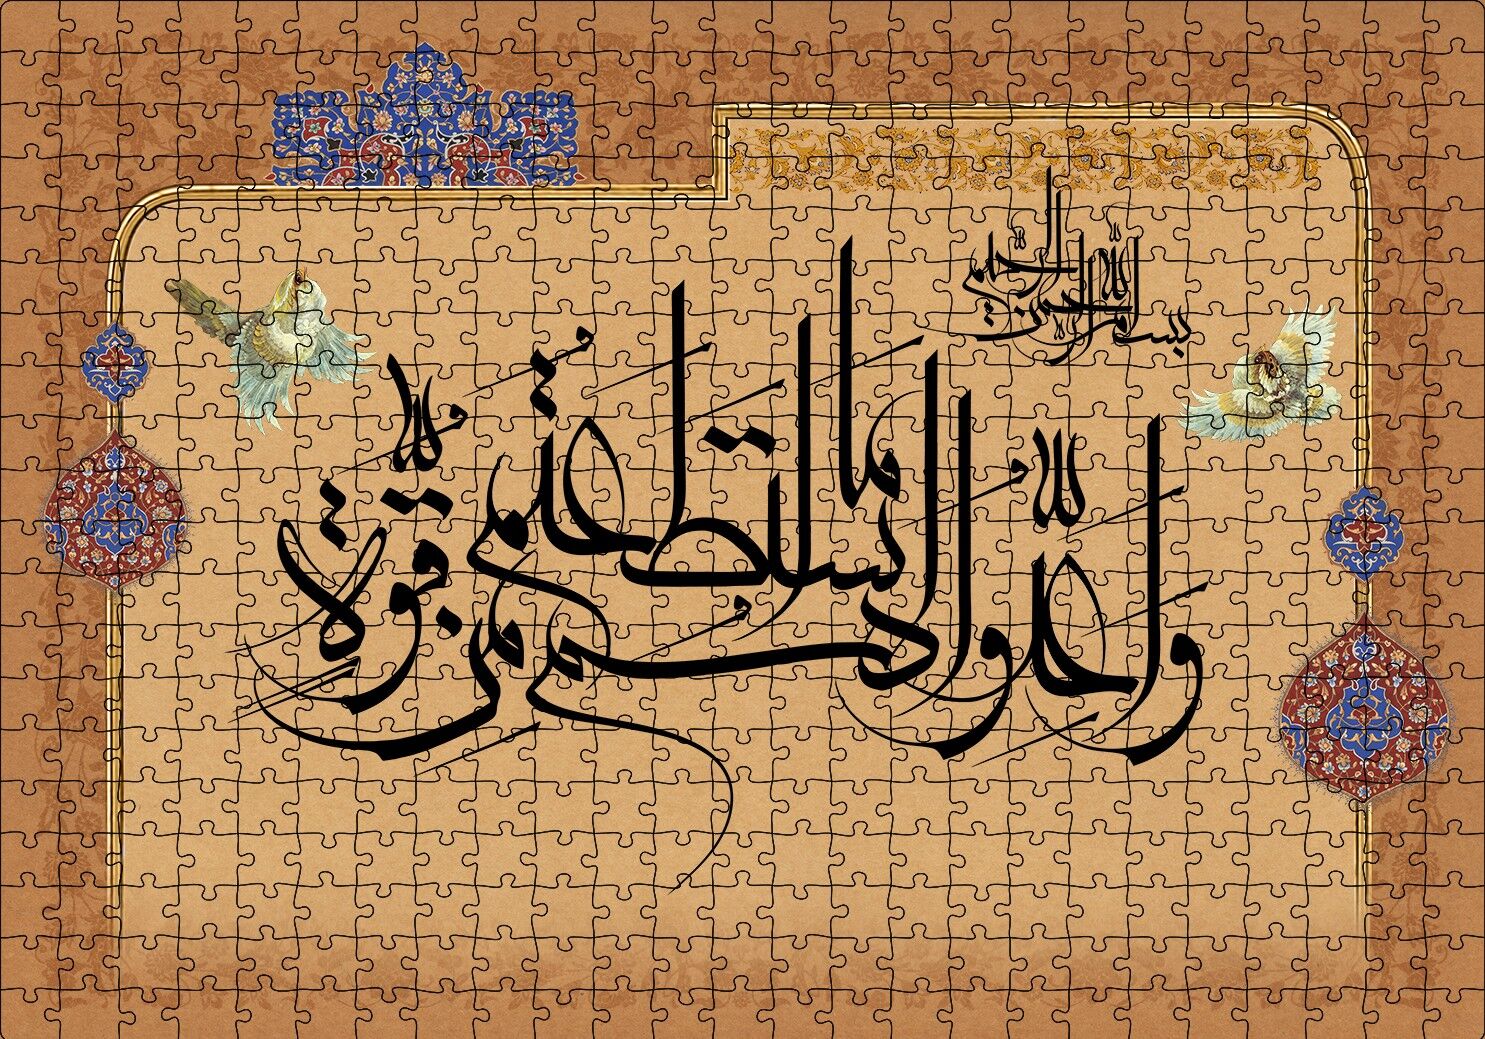 بسم الله الرحمن الرحیم
واعدوا لهم ما استطعتم من قوة